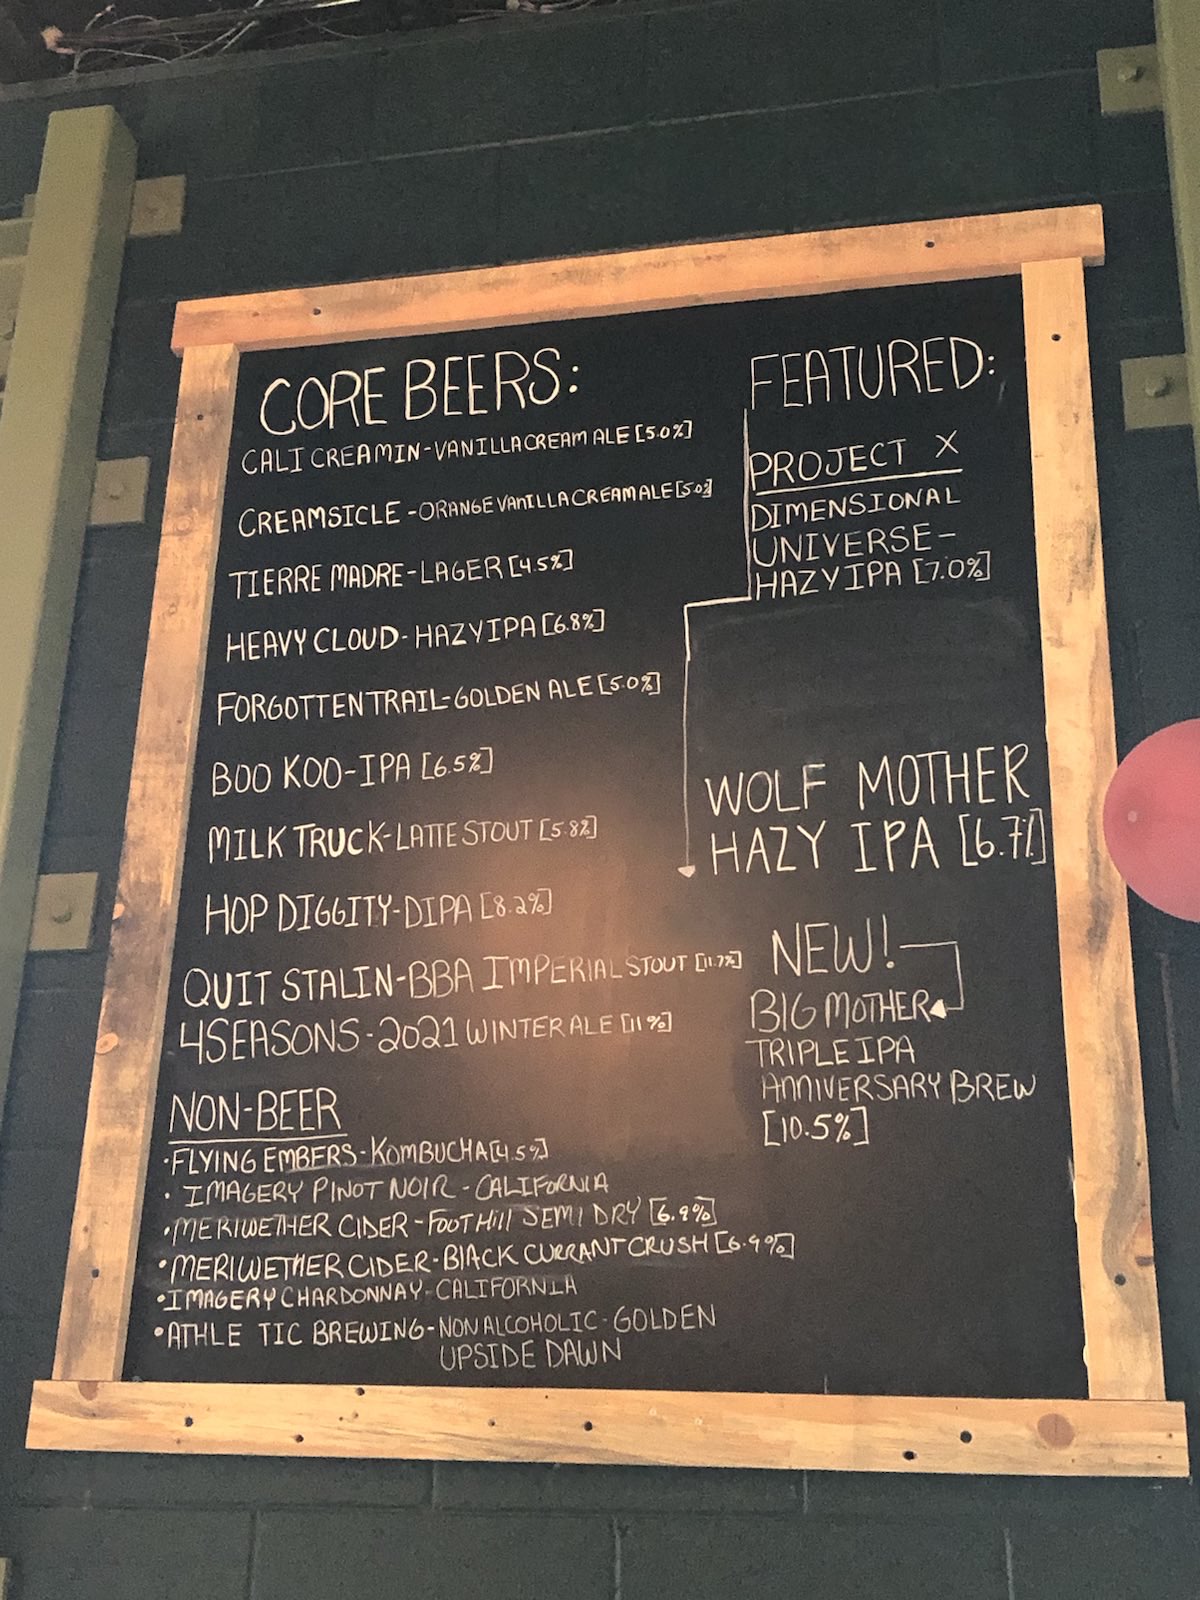 CORE BEERS:
CALI CREAMIN-VANILLA CREAM ALE [5.0%]
CREAMSICLE-ORANGE VANILLA CREAM ALE [5.0%]
TIERRE MADRE-LAGER [4.5%]
HEAVY CLOUD-HAZY IPA [6.8%]
FORGOTTEN TRAIL-GOLDEN ALE [5.0%]
BOO KOO-IPA [6.5%]
MILK TRUCK-LATTE STOUT [5.8%]
HOP DIGGITY-DIPA [8.2%]
QUIT STALIN-BBA IMPERIAL STOUT [11.7%]
4SEASONS-2021 WINTER ALE [11%]
NON-BEER
·FLYING EMBERS-KOMBUCHA [4.5%]
· IMAGERY PINOT NOIR-CALIFORNIA
·MERIWETHER CIDER-FOOTHILL SEMI DRY [6.9%]
·MERIWETHER CIDER-BLACK CURRANT CRUSH [6.9%]
·IMAGERY CHARDONNAY-CALIFORNIA
·ATHLETIC BREWING-NON ALCOHOLIC-GOLDEN
UPSIDE DAWN
FEATURED:
PROJECT X
DIMENSIONAL
UNIVERSE-
HAZY IPA [7.0%]
WOLF MOTHER
HAZY IPA [6.7%]
NEW!
BIG MOTHER
TRIPLE IPA
ANNIVERSARY BREW
[10.5%]